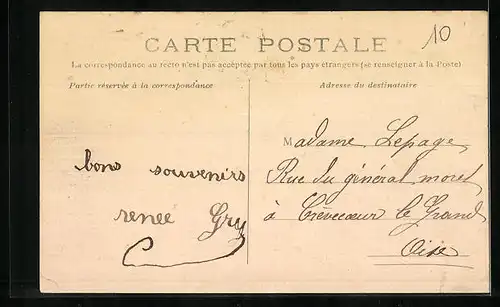 10
CARTE POSTALE
La correspondance au recto n'est pas acceptée par tous les pays étrangers (se renseigner à la Poste)
Partie réservée à la correspondance
Adresse du destinataire
bons souvenirs
renée Gry
Madame Lepage
Rue du général moret
à Crèvecœur le Grand
Oise